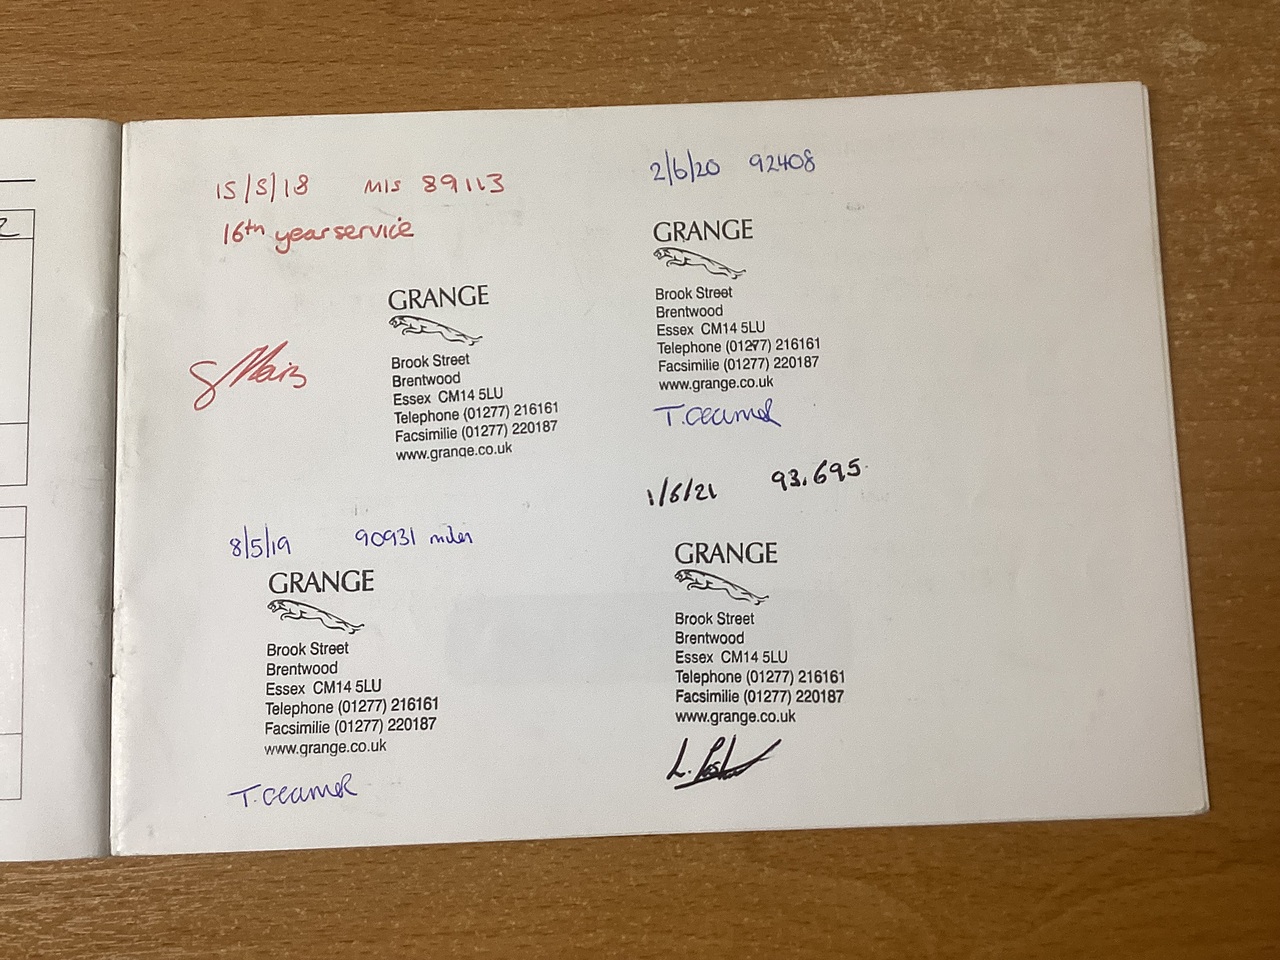 15/5/18 MIS 89113
16th year service
GRANGE
Brook Street
Brentwood
Essex CM14 5LU
Telephone (01277) 216161
Facsimilie (01277) 220187
www.grange.co.uk
8/5/19 90931 miles
GRANGE
Brook Street
Brentwood
Essex CM14 5LU
Telephone (01277) 216161
Facsimilie (01277) 220187
www.grange.co.uk
2/6/20 92408
GRANGE
Brook Street
Brentwood
Essex CM14 5LU
Telephone (01277) 216161
Facsimilie (01277) 220187
www.grange.co.uk
1/6/21 93.695
GRANGE
Brook Street
Brentwood
Essex CM14 5LU
Telephone (01277) 216161
Facsimilie (01277) 220187
www.grange.co.uk